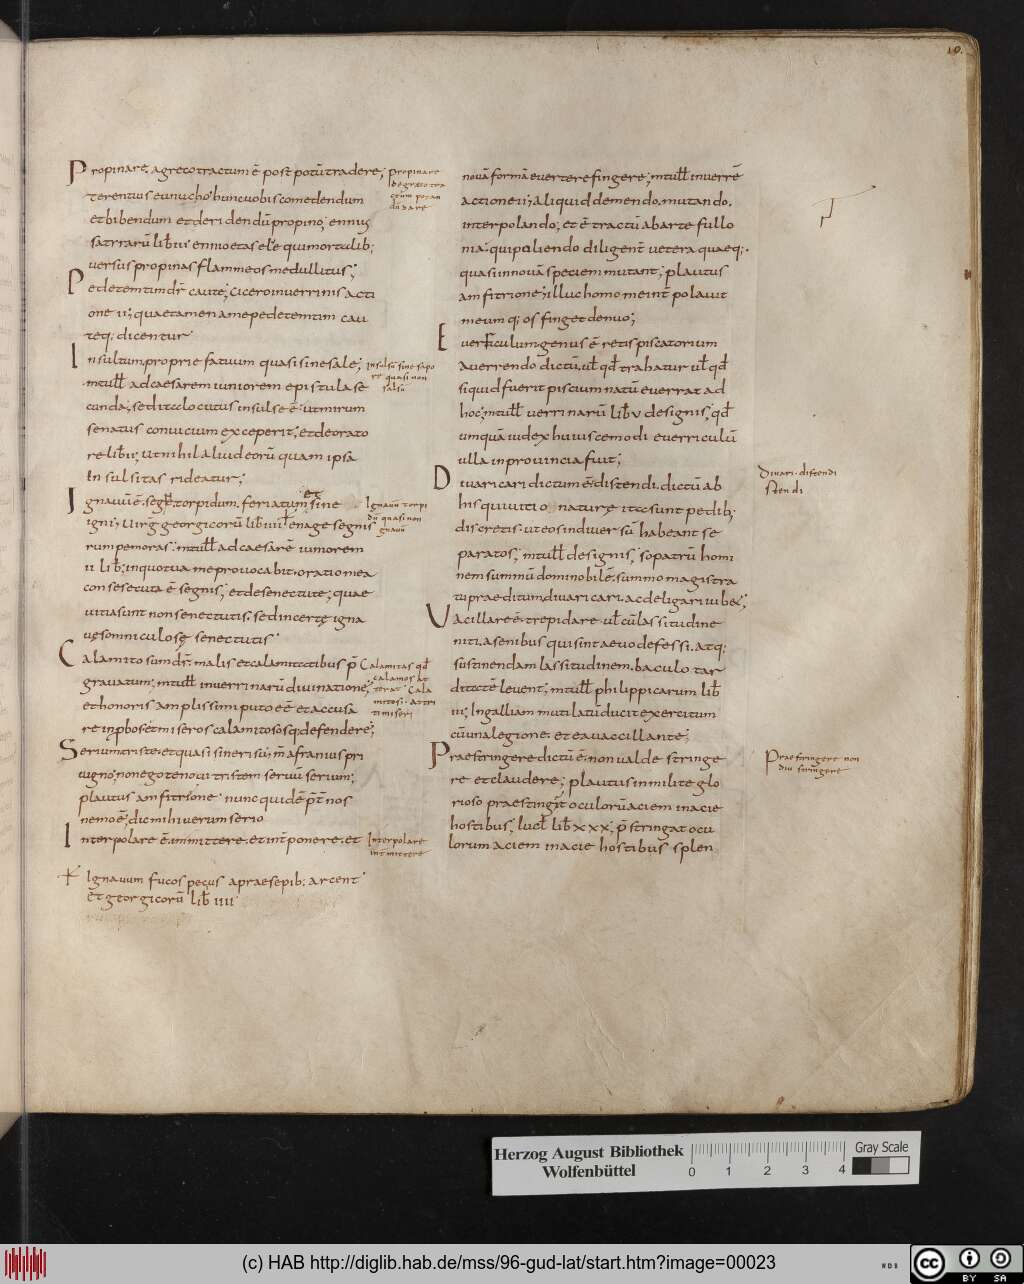 10.
Propinare. agreco tractum ē post potū tradere;
terentius eunucho hunc uobis comedendum
et bibendum et deridendū propino; ennius
satirarū lib̄ iii ennoetas
uersus propinas flammeos medullitus;
Pedetemtim dr̄ caute; cicero inuerrinis acti
one ii; quae tamen
teq; dicentur
Insultum proprie fatuum quasi sine sale;
mtull̄ ad caesarem iuniorem epistula se
cunda; sed
senatus conuicium exceperit; et deorato
re lib̄ ii; ut nihil aliud eorū quam ipsa
Insulsitas rideatur;
et
Ignauū ē. torpidum. feriatum sine
igni; uirḡ georgicorū lib̄ iiii enage segnis
rumpe moras; mtull̄ ad caesarē iuniorem
ii lib̄; in quo tua me prouocabit oratio mea
consecuta ē segnis; et de senectute; quae
uitia sunt non senectutis. sed inertę igna
uę somniculosę senectutis
Calamitosum dr̄. malis et calamitatibus p̄
grauatum; mtull̄ inuerrinarū diuinatione;
et honoris amplissimi puto eē et accusa
re inprobos et miseros calamitosósq; defendere;
Serium triste. et quasi sine risu; m̄ afranius pri
uigno; non ego te noui tristem seruū serium;
plautus amfitrione nunc quidē p̄t nos
nemo ē; dic mihi uerum serio
Interpolare ē. immittere. et int̄ponere. et
Ignauum fucos pecus a praesepib; arcent
ēt georgicorū lib̄ iiii
Propinare
degreco tra
ctum potan
dū dare
Insulsū sine sapo
re quasi non
salsū
Ignauū torpi
dū quasi non
gnauū
Calamitas qd̄
calamos
Cala
mitosi
miseri
Interpolare
int̄mittere
nouā formā euertere fingere; mtull̄ inuerrē
actione ii; aliquid demendo. mutando.
interpolando; et ē tractū ab arte fullo
nia. qui poliendo diligent̄ uetera quaeq;
quasi in nouā speciem mutant; plautus
amfitrione; illuc homo me int̄polauit
meumq; os finget denuo;
Euerriculum. genus ē retis piscatorium
a uerrendo dictū. ul̄ qd̄ trahatur ul̄ qd̄
siquid fuerit piscium natū euerrat ad
hoc; mtull̄ uerrinarū lib̄ v designis; qd̄
umquā iudex huiuscemodi euerriculū
ulla in prouincia fuit;
Diuaricari dictum ē. distendi. dictū ab
his qui uitio naturę ita sunt pedib;
discretis. ut eos in diuersū habeant se
paratos; mtull̄ de signis; sopatrū homi
nem summū domi nobilē. summo magistra
tu praeditum. diuaricari. ac deligari iubet;
Vacillare ē. trepidare. ul̄ cū lassitudine
niti. a senibus qui sint aeuo defessi. atq;
sustinendam lassitudinem. baculo tar
ditatē leuent; mtull̄ philippicarum lib̄
iii; In galliam mutilatū ducit exercitum
cū una legione. et ea uaccillante;
Praestringere dictū ē. non ualde stringe
re et claudere; plautus in milite glo
rioso praestingit oculorū aciem in acie
hostibus; lucil̄ lib̄ xxx; p̄stringat ocu
lorum aciem in acie hostibus splen
diuari. distendi
stendi
Praestringere non
diu stringere
Herzog August Bibliothek
Wolfenbüttel
0 1 2 3 4
Gray Scale
(c) HAB http://diglib.hab.de/mss/96-gud-lat/start.htm?image=00023
WDB
cc BY SA